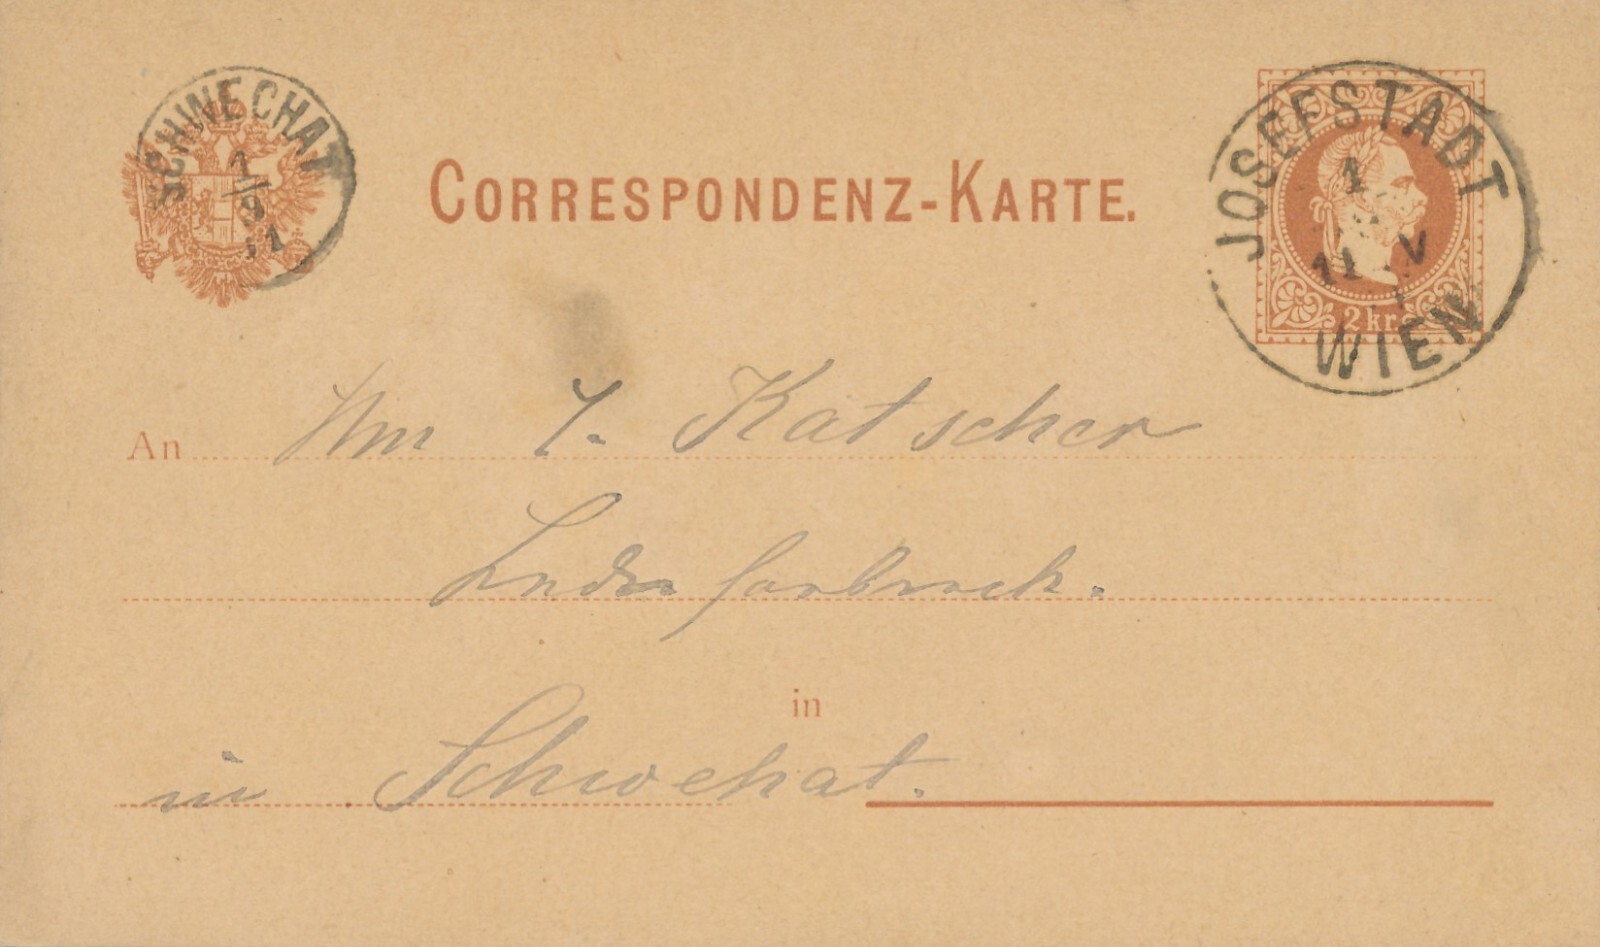 SCHWECHAT
1
9
81
CORRESPONDENZ-KARTE.
JOSEFSTADT
1
11 V
WIEN
2 kr.
An Hrn J. Katscher
in
in Schwechat.